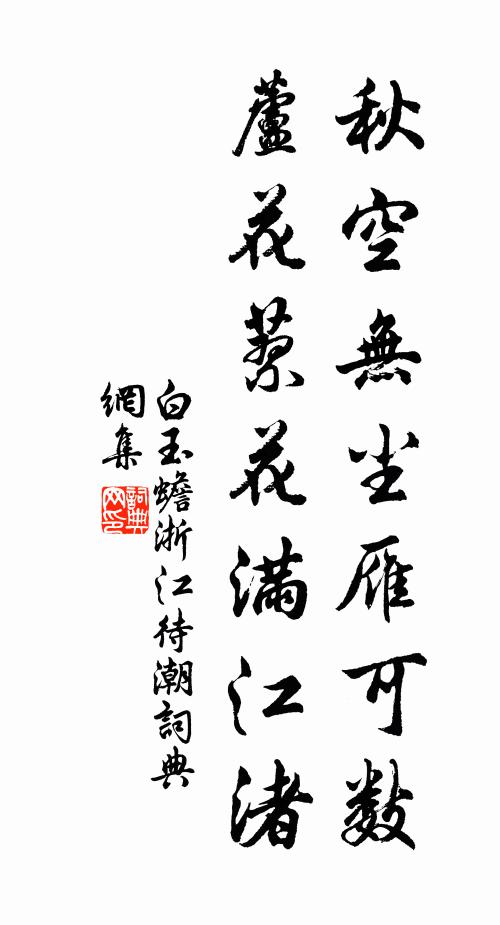 秋空無尘雁可數
蘆花蓼花滿江渚
白玉蟾浙江待潮詞典
網集
詞典
网印